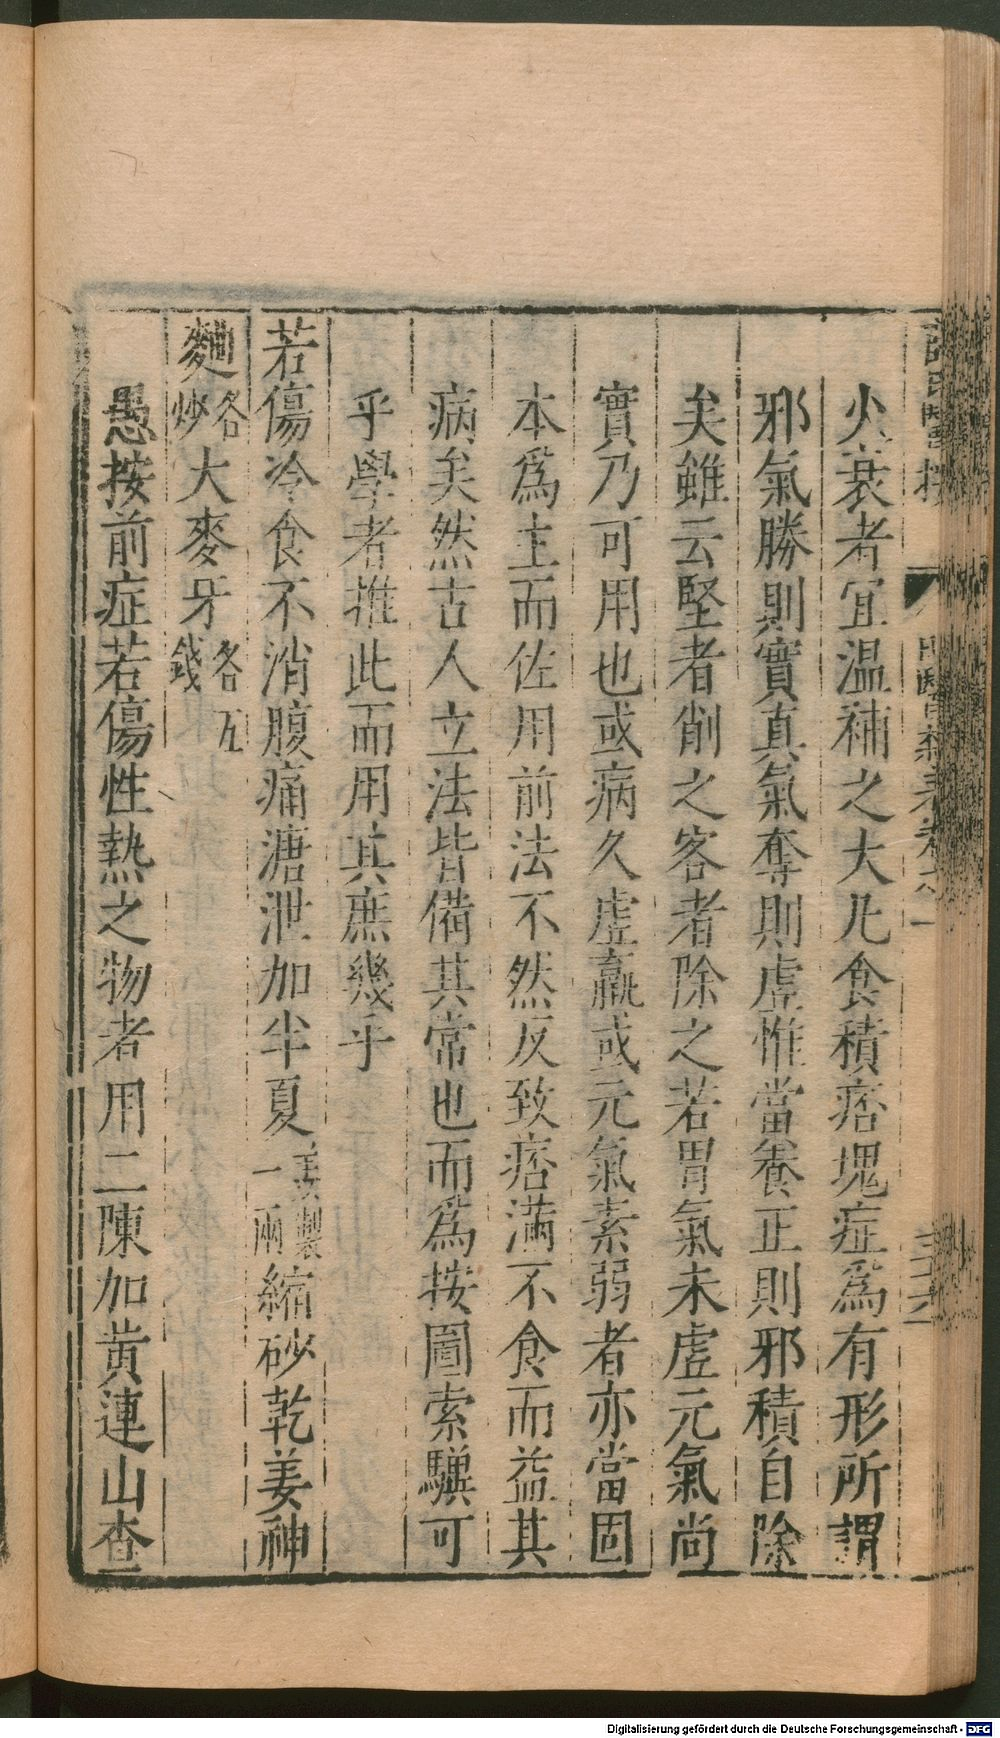 少衰者宜温補之大凡食積痞塊症爲有形所謂
邪氣勝則實真氣奪則虛惟當養正則邪積自除
矣雖云堅者削之客者除之若胃氣未虛元氣尚
實乃可用也或病久虛羸或元氣素弱者亦當固
本爲主而佐用前法不然反致痞滿不食而益其
病矣然古人立法皆備其常也而爲按圖索驥可
乎學者推此而用其庶幾乎
若傷冷食不消腹痛溏泄加半夏姜製一兩縮砂乾姜神
麯各炒大麥牙各五錢
愚按前症若傷性熱之物者用二陳加黄連山查
Digitalisierung gefördert durch die Deutsche Forschungsgemeinschaft - DFG